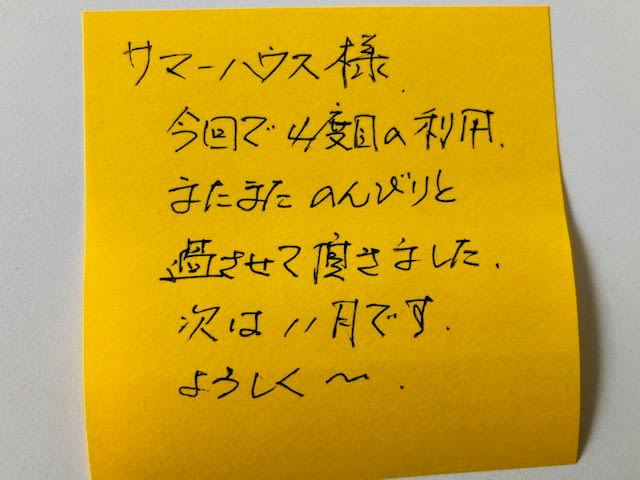 サマーハウス様.
今回で4度目の利用.
またまたのんびりと
過させて頂きました.
次は11月です.
よろしく〜.